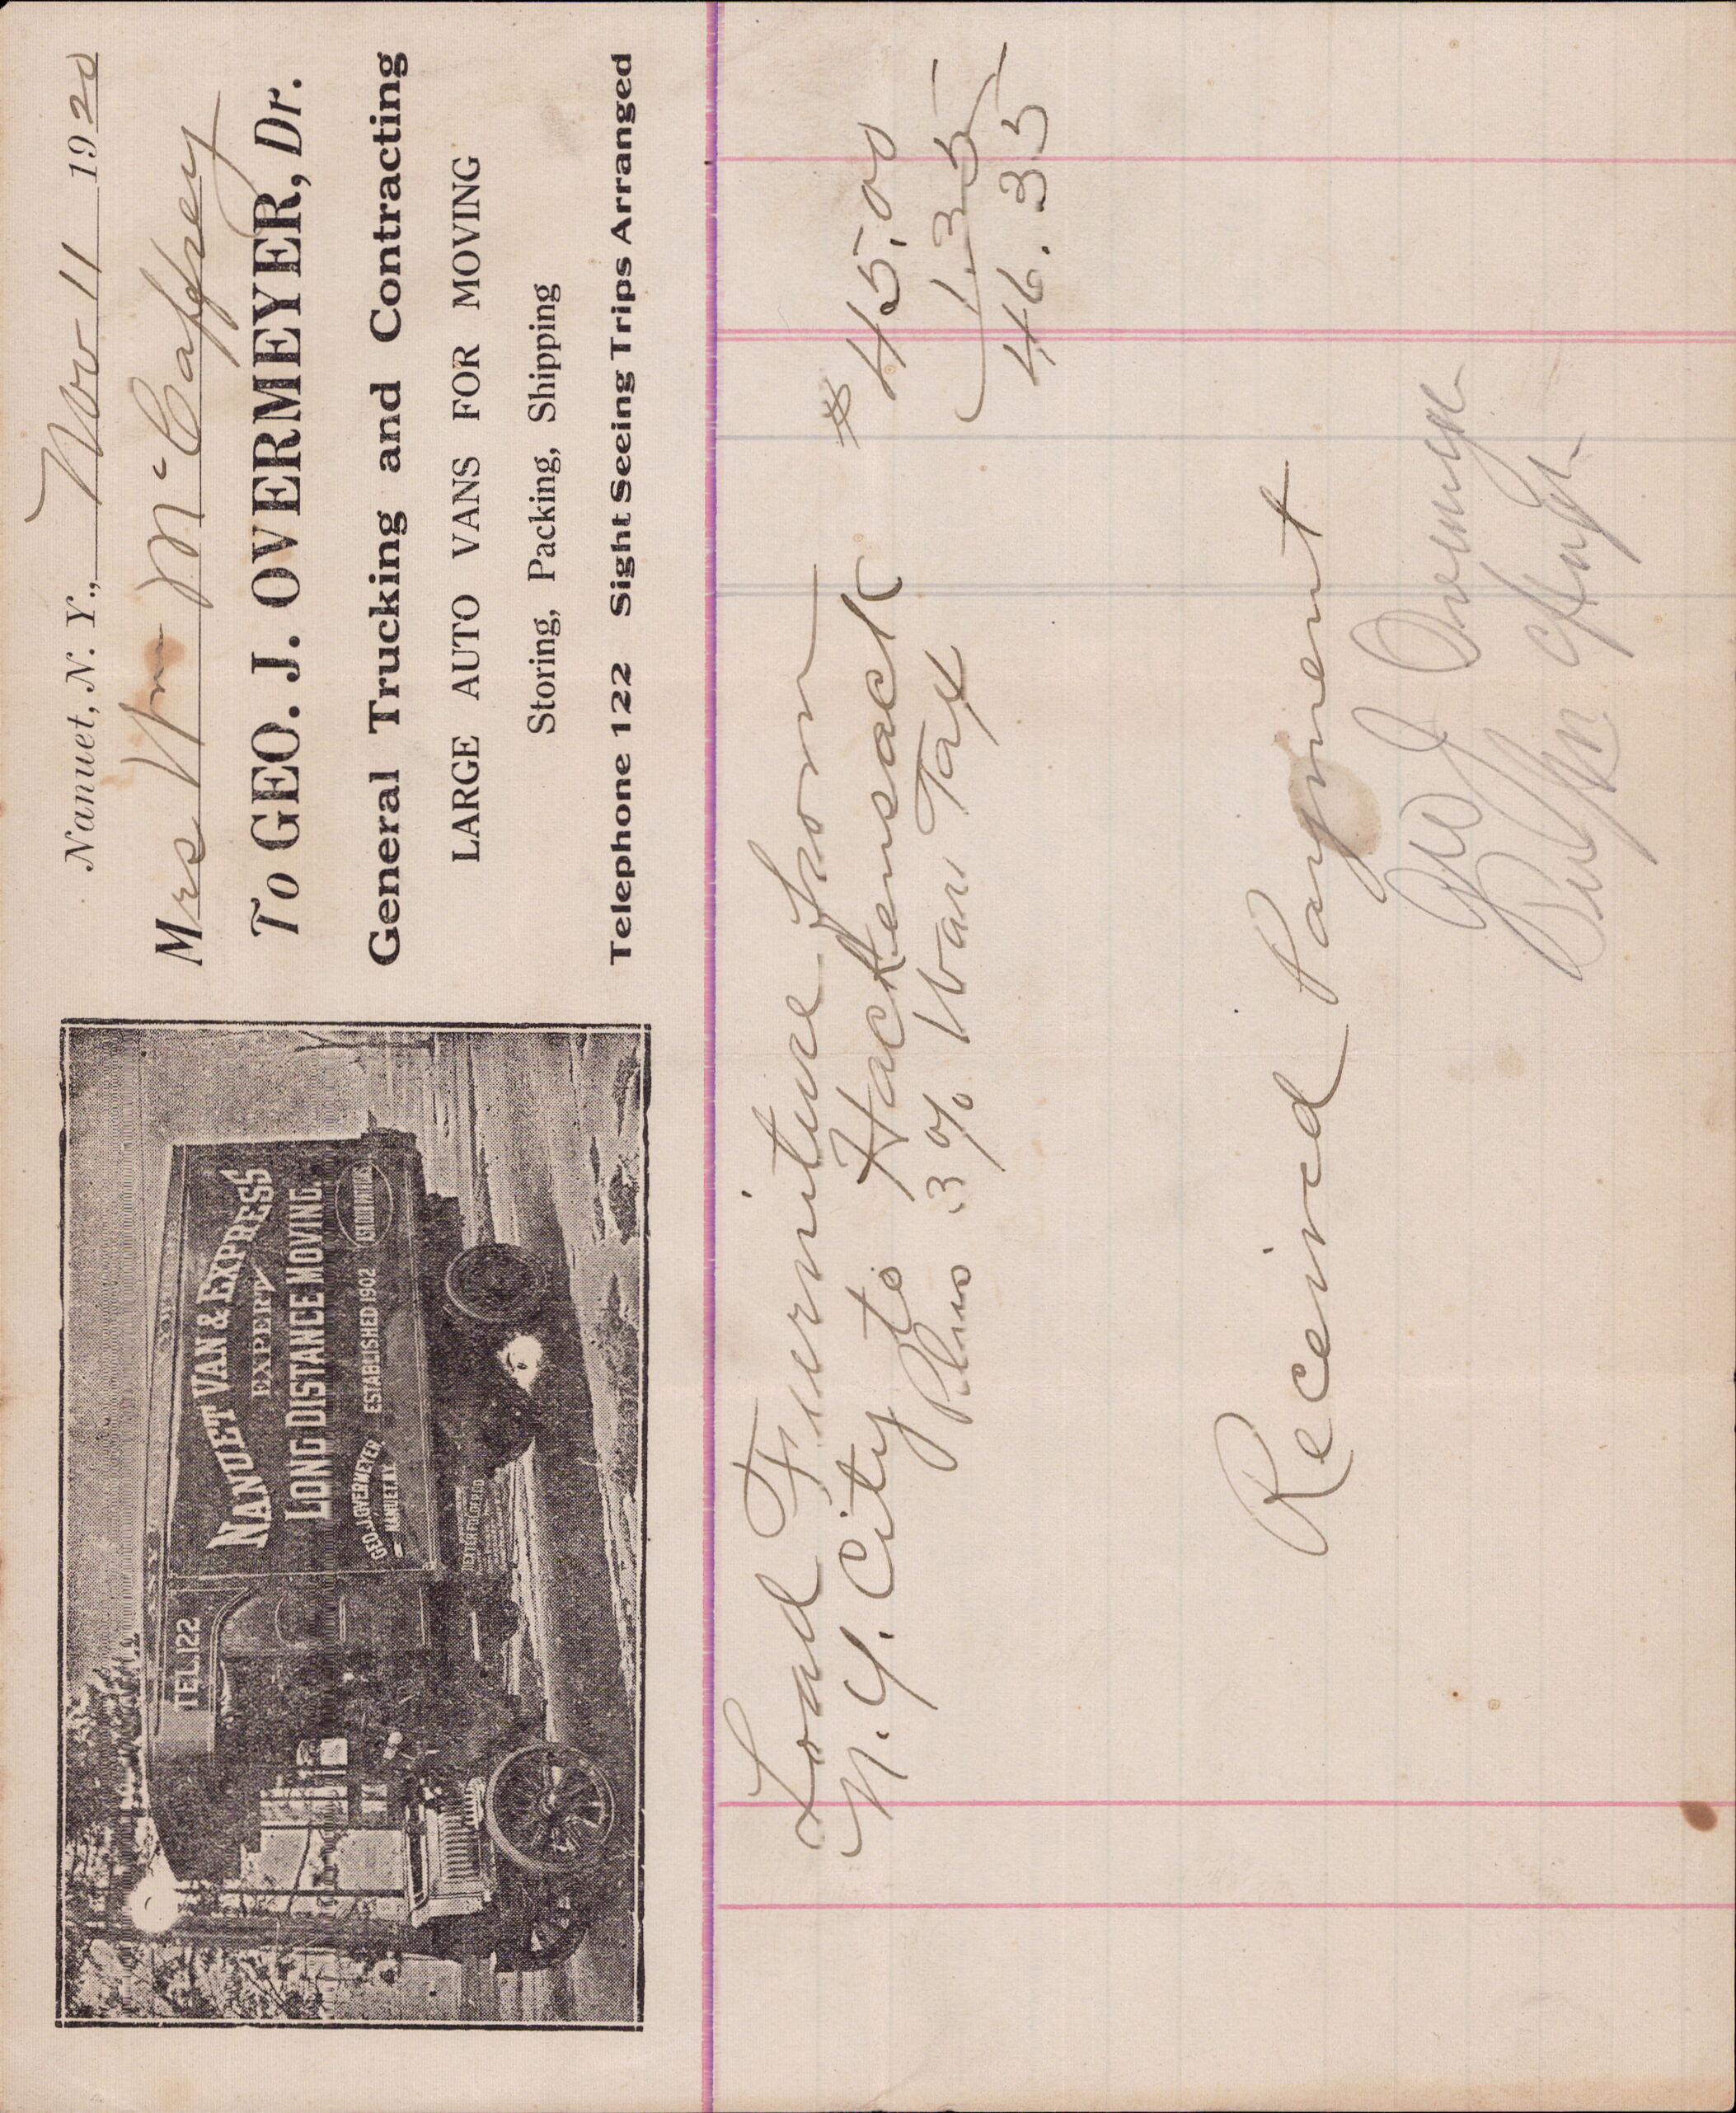 Nanuet, N. Y., Nov 11 1920
Mrs Wm McCaffrey
To GEO. J. OVERMEYER, Dr.
General Trucking and Contracting
LARGE AUTO VANS FOR MOVING
Storing, Packing, Shipping
Telephone 122 Sight Seeing Trips Arranged
TEL.122
NANUET VAN & EXPRESS
EXPERT
LONG DISTANCE MOVING
GEO.J.OVERMEYER
NANUET.N.Y.
ESTABLISHED 1902
Load Furniture from
N.Y. City to Hackensack $ 45.00
Plus 3% War Tax 1.35
46.35
Received Payment
Geo J Overmeyer